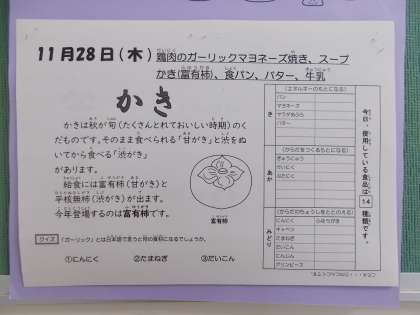 11月28日(木)
鶏肉のガーリックマヨネーズ焼き、スープ
かき(富有柿)、食パン、バター、牛乳
かき
かきは秋が旬(たくさんとれておいしい時期)のく
だものです。そのまま食べられる「甘がき」と渋をぬ
いてから食べる「渋がき」
があります。
給食には富有柿(甘がき)と
平核無柿(渋がき)が出ます。
今年登場するのは富有柿です。
富有柿
クイズ 「ガーリック」とは日本語で言うと何の食材になるでしょうか。
①にんにく ②たまねぎ ③だいこん
き
(エネルギーのもとになる)
パン
マヨネーズ
サラダあぶら
バター
あか
(からだをつくるもとになる)
ぎゅうにゅう
とりにく
みどり
(からだのちょうしをととのえる)
にんにく ふゆうがき
キャベツ
たまねぎ
だいこん
にんじん
グリンピース
今日、使用している食品は
14
種類です。